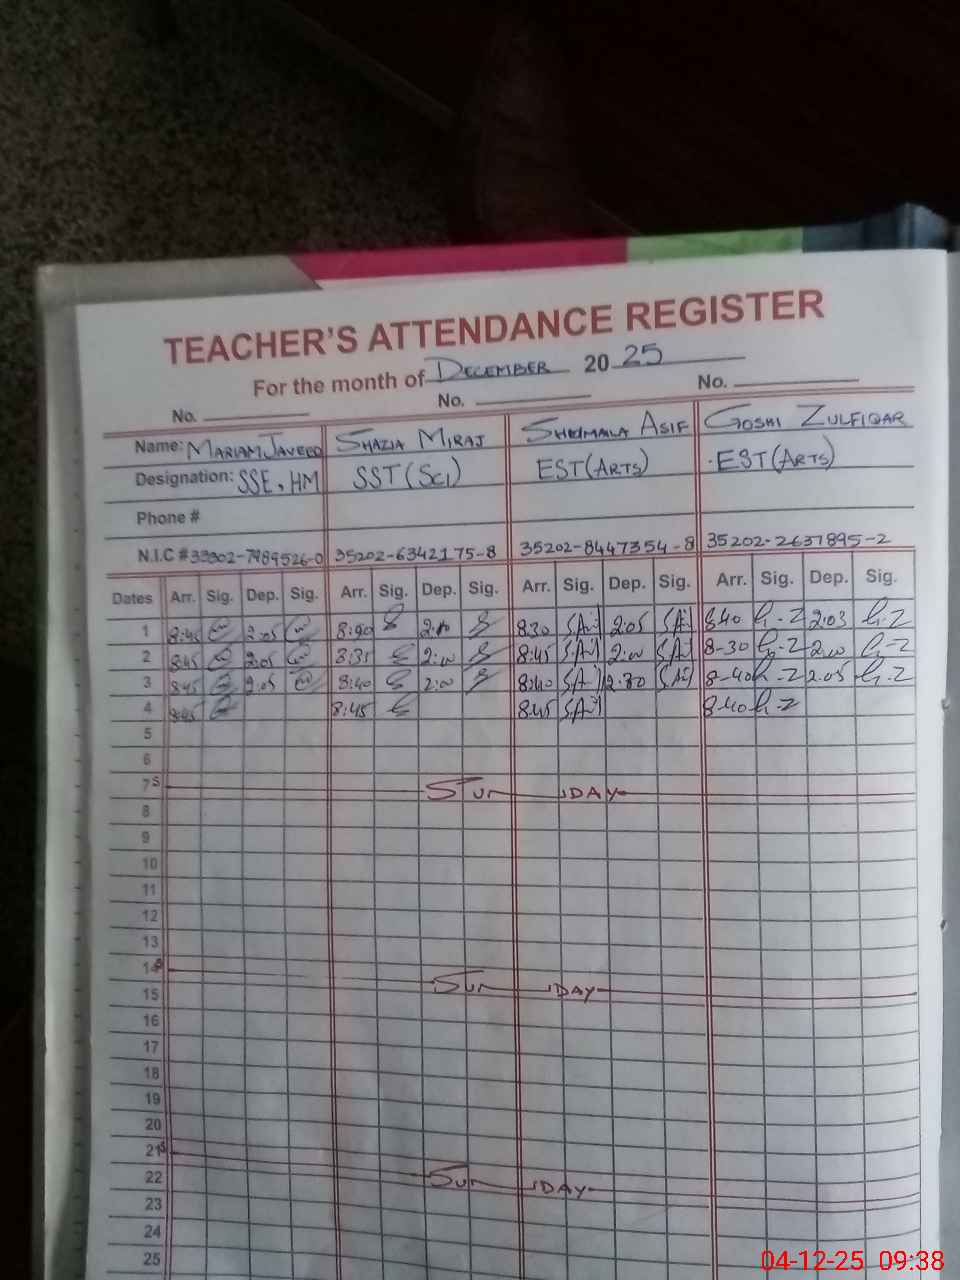 TEACHER'S ATTENDANCE REGISTER
For the month of DECEMBER 2025
No. No. No.
Name: MARIAM JAVEED SHAZIA MIRAJ ASIF GOSHI ZULFIQAR
Designation: SSE, HM SST (SCI) EST (ARTS) EST (ARTS)
Phone #
N.I.C # 35202-6342175-8 35202-8447354-8 35202-2637895-2
Dates Arr. Sig. Dep. Sig. Arr. Sig. Dep. Sig. Arr. Sig. Dep. Sig. Arr. Sig. Dep. Sig.
1 8:45 2:05 2:10 8:30 2:05 8:40 2:03
2 8:45 2:05 8:35 2:00 8:45 2:00 8-30 2:00
3 8:45 2:05 8:40 2:00 8:40 8-40 2:05
4 8:45 8:45 8:45 8-40
5
6
7 S SUN DAY
8
9
10
11
12
13
14 SUN DAY
15
16
17
18
19
20
21 S SUN DAY
22
23
24
25
04-12-25 09:38